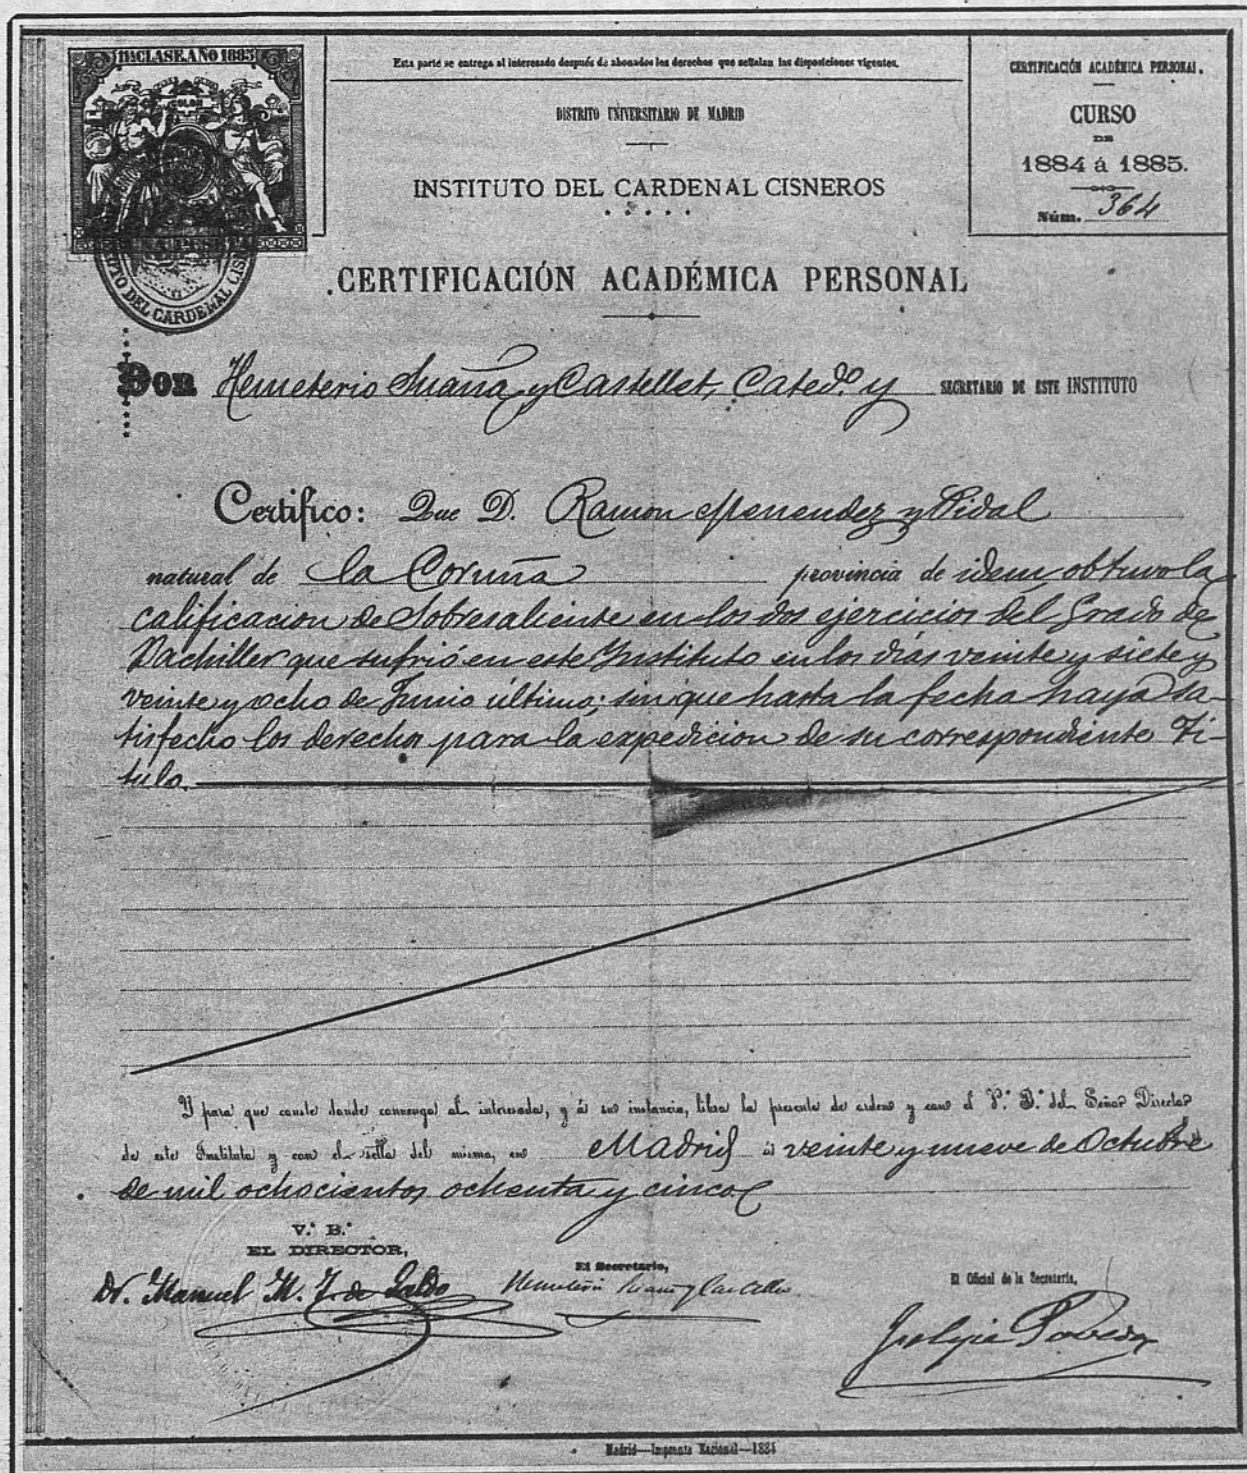 11ª CLASE. AÑO 1885
COLON
UNA PESETA
INSTITUTO DEL CARDENAL CISNEROS
Esta parte se entrega al interesado después de abonados los derechos que señalan las disposiciones vigentes.
DISTRITO UNIVERSITARIO DE MADRID
INSTITUTO DEL CARDENAL CISNEROS
CERTIFICACIÓN ACADÉMICA PERSONAL.
CURSO
DE
1884 á 1885.
Núm. 364
CERTIFICACIÓN ACADÉMICA PERSONAL
Don Hemeterio Suaña y Castellet, Catedº y SECRETARIO DE ESTE INSTITUTO
Certifico: Que D. Ramon Menendez y Pidal
natural de La Coruña provincia de idem, obtuvo la
calificacion de Sobresaliente en los dos ejercicios del Grado de
Bachiller que sufrió en este Instituto en los días veinte y siete y
veinte y ocho de Junio último; sin que hasta la fecha haya sa-
tisfecho los derechos para la expedicion de su correspondiente Ti-
tulo.
Y para que conste donde convenga al interesado, y á su instancia, libro la presente de orden y con el V.º B.º del Señor Director
de este Instituto y con el sello del mismo, en Madrid á veinte y nueve de Octubre
de mil ochocientos ochenta y cinco
V.º B.º
EL DIRECTOR,
Dr. Manuel M. J. de Galdo
El Secretario,
Hemeterio Suaña y Castellet
El Oficial de la Secretaría,
Poveda
Madrid—Imprenta Nacional—1884